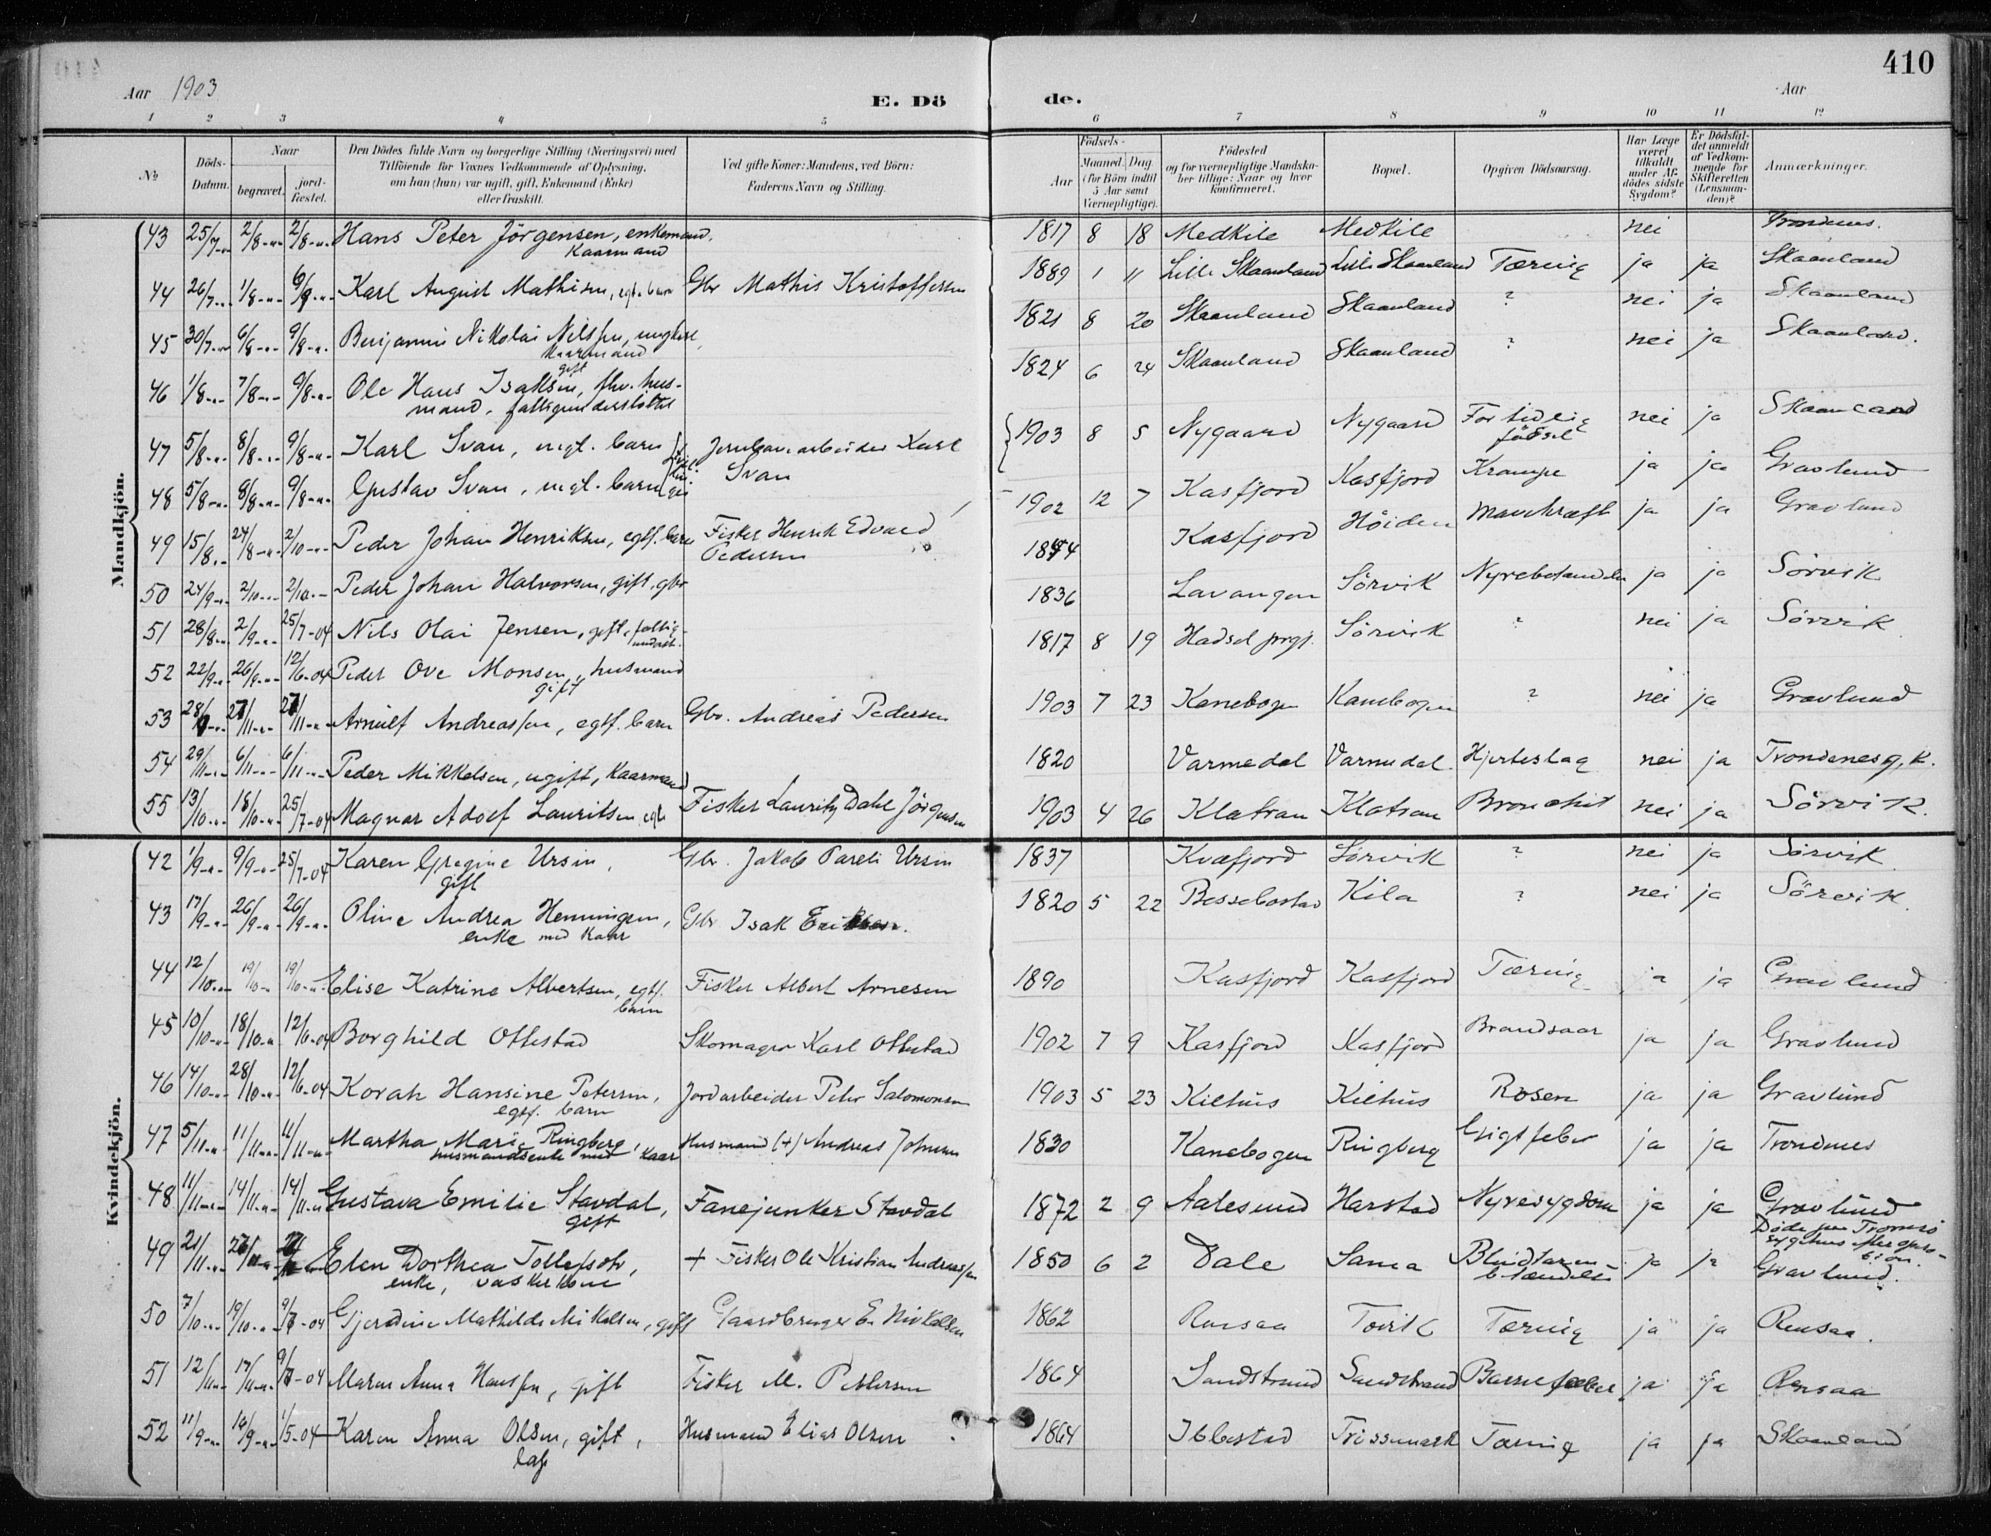 410
Aar 1903
E. Dö de.
Aar
1 2 3 4 5 6 7 8 9 10 11 12
No
Döds-Datum.
Naar
begravet.
jord-fæstet.
Den Dödes fulde Navn og borgerlige Stilling (Næringsvei) med
Tilföiende for Voxnes Vedkommende af Oplysning,
om han (hun) var ugift, gift, Enkemand (Enke)
eller fraskilt.
Ved gifte Koner: Mandens, ved Börn:
Faderens Navn og Stilling.
Födsels-
Aar
Maaned. Dag
(for Börn indtil
5 Aar samt
Værnepligtige).
Födested
og for værnepligtige Mandska-
ber tillige: Naar og hvor
konfirmeret.
Bopæl.
Opgiven Dödsaarsag.
Har Læge
været
tilkaldt
under Af-
dödes sidste
Sygdom?
Er Dödsfal-
det anmeldt
af Vedkom-
mende for
Skifteretten
(Lensman-
den)?
Anmærkninger.
Mandkjön.
43 25/7 2/8 2/8 Hans Peter Jörgensen, enkemand, Kaarmand 1817 8 18 Medkile Medkile nei Trondenes.
44 26/7 1/8 Karl August Mathisen, egt. barn Gbr Mathis Kristoffersen 1889 1 11 Lille Skaanland Lille Skaanland Tæring ja ja Skaanland
45 30/7 6/8 9/8 Benjamin Nikolai Nilssen, ungkarl, Kaarmand 1821 8 20 Skaanland Skaanland ? nei ja Skaanland
46 1/8 7/8 9/8 Ole Hans Isaksen, gift fhv. hus-
mand, fattigunderstöttet 1824 6 24 Skaanland Skaanland ? nei ja Skaanland.
47 5/8 8/8 9/8 Karl Svan, uegt. barn Jernbanearbeider Karl
Svan 1903 8 5 Nygaard Nygaard For tidlig
födsel nei ja Skaanland
48 5/8 8/8 9/8 Gustav Svan, uegt. barn
49 15/8 24/8 2/10 Peder Johan Henriksen, egtf. barn Fisker Henrik Edvard
Pedersen 1902 12 7 Kasfjord Kasfjord Krampe ja ja Gravlund
50 24/9 2/10 2/10 Peder Johan Halvorsen, gift, gbr Kasfjord Höiden Mavekræft ja ja Gravlund
51 28/8 2/9 25/7-04 Nils Olai Jensen, gift, fattig-
underst. 1836 Lavangen Sörvik Nyrebetændelse ja ja Sörvik
52 22/9 26/9 12/6-04 Peder Ove Monsen, husmand
gift 1817 8 19 Hadsel prgj. Sörvik ? nei ja Sörvik
53 Arnulf Andreassen, egtf. barn Gbr. Andreas Pedersen 1903 7 23 Kanebogen Kanebogen ? nei ja Gravlund
54 29/11 6/11 6/11 Peder Mikkelsen, ugift, Kaarmand 1820 Varmedal Varmedal Hjerteslag nei ja Trondenes g. K.
55 13/10 18/10 25/7-04 Magnar Adolf Lauritsen Fisker Lauritz Dahl Jörgensen 1903 4 26 Klatran Klatran Bronchit nei ja Sörvik.
Kvindekjön.
42 1/9 9/9 25/7-04 Karen Gregine Ursin,
gift Gbr. Jakob Pareli Ursin 1837 Kvæfjord Sörvik ? nei ja Sörvik
43 17/9 26/9 26/9 Oline Andrea Henningsen,
enke med Kaar Gbr Isak Eriksen. 1820 5 22 Bessebostad Kila ? nei ja Sörvik.
44 12/10 19/10 19/10 Elise Katrine Albertsen, egtf.
barn Fisker Albert Arnesen 1890 Kasfjord Kasfjord Tæring ja ja Gravlund
45 10/10 18/10 12/6-04 Borghild Ottestad Skomager Karl Ottestad 1902 7 9 Kasfjord Kasfjord Brandsaar ja ja Gravlund
46 14/10 28/10 12/6-04 Korah Hansine Petersen,
egtf. barn Jordarbeider Peter Salomonsen 1903 5 23 Kilhus Kilhus Rosen ja ja Gravlund
47 5/11 11/11 11/11 Martha Marie Ringberg,
husmandsenke med Kaar Husmand (+) Andreas Johnsen 1830 Kanebogen Ringberg Gigtfeber ja ja Trondenes
48 11/11 14/11 14/11 Gustava Emilie Stavdal,
gift Fanejunker Stavdal 1872 2 9 Aalesund Harstad Nyresygdom ja ja Gravlund
49 21/11 Elen Dorthea Tollefsdtr,
enke, vaskerkone + Fisker Ole Kristian Andreassen 1850 6 2 Dale Sama Blindtarm
betændelse ja ja Döde paa Tromsö
sygehus efter opera-
tion.
Gravlund.
50 7/10 19/10 9/7-04 Gjerdine Mathilde Mikalsen, gift Gaardbruger E. Mikalsen 1862 Rensaa Tovik Tæring ja ja Rensaa.
51 12/11 17/11 9/7-04 Maren Anna Hanssen, gift Fisker M. Pedersen 1864 Sandstrand Sandstrand Barselfeber ja ja Rensaa
52 11/9 14/9 1/5-04 Karen Anna Olsen, gift,
lap Husmand Elias Olsen 1864 Ibbestad Trissemark Tæring ja ja Skaanland